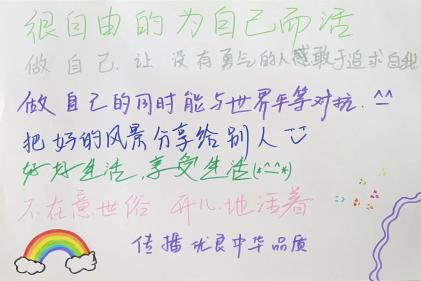 很自由的为自己而活
做自己,让没有勇气的人感敢于追求自我
做自己的同时能与世界平等对抗.^^
把好的风景分享给别人
好好生活,享受生活(*^^*)
不在意世俗 开心地活着
传播优良中华品质